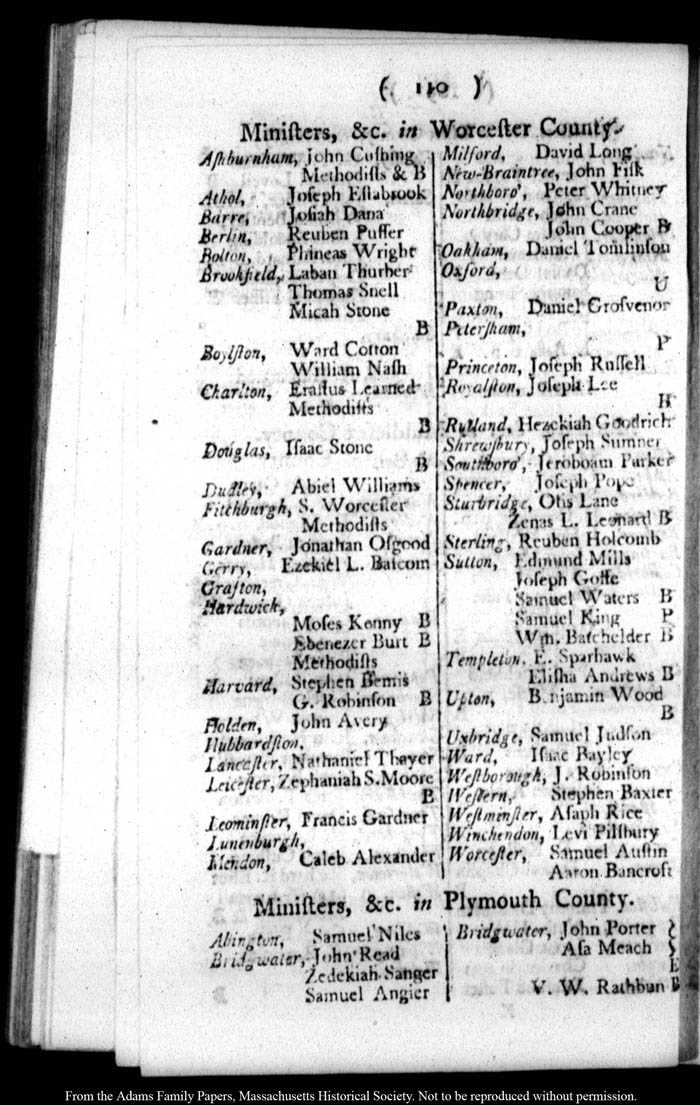 ( 110 )
Miniſters, &c. in Worceſter County.
Aſhburnham, John Cuſhing
Methodiſts & B
Athol, Joſeph Eſtabrook
Barre, Joſiah Dana
Berlin, Reuben Puffer
Bolton, Phineas Wright
Brookfield, Laban Thurber
Thomas Snell
Micah Stone
B
Boylſton, Ward Cotton
William Naſh
Charlton, Eraſtus Learned
Methodiſts
B
Douglas, Iſaac Stone
B
Dudley, Abiel Williams
Fitchburgh, S. Worceſter
Methodiſts
Gardner, Jonathan Oſgood
Gerry, Ezekiel L. Baſcom
Grafton,
Hardwick,
Moſes Kenny B
Ebenezer Burt B
Methodiſts
Harvard, Stephen Bemis
G. Robinſon B
Holden, John Avery
Hubbardſton,
Lancaſter, Nathaniel Thayer
Leiceſter, Zephaniah S. Moore
B
Leominſter, Francis Gardner
Lunenburgh,
Mendon, Caleb Alexander
Milford, David Long
New-Braintree, John Fiſk
Northboro', Peter Whitney
Northbridge, John Crane
John Cooper B
Oakham, Daniel Tomlinſon
Oxford,
U
Paxton, Daniel Groſvenor
Peterſham,
P
Princeton, Joſeph Ruſſell
Royalſton, Joſeph Lee
Rutland, Hezekiah Goodrich
Shrewſbury, Joſeph Sumner
Southboro', Jeroboam Parker
Spencer, Joſeph Pope
Sturbridge, Otis Lane
Zenas L. Leonard B
Sterling, Reuben Holcomb
Sutton, Edmund Mills
Joſeph Goffe
Samuel Waters B
Samuel King
Wm. Batchelder B
Templeton, E. Sparhawk
Eliſha Andrews B
Upton, Benjamin Wood
B
Uxbridge, Samuel Judſon
Ward, Iſaac Bayley
Weſtborough, J. Robinſon
Weſtern, Stephen Baxter
Weſtminſter, Aſaph Rice
Winchendon, Levi Pillſbury
Worceſter, Samuel Auſtin
Aaron Bancroft
Miniſters, &c. in Plymouth County.
Abington, Samuel Niles
Bridgwater, John Read
Zedekiah Sanger
Samuel Angier
Bridgwater, John Porter }
Aſa Meach }
V. W. Rathbun B
From the Adams Family Papers, Massachusetts Historical Society. Not to be reproduced without permission.